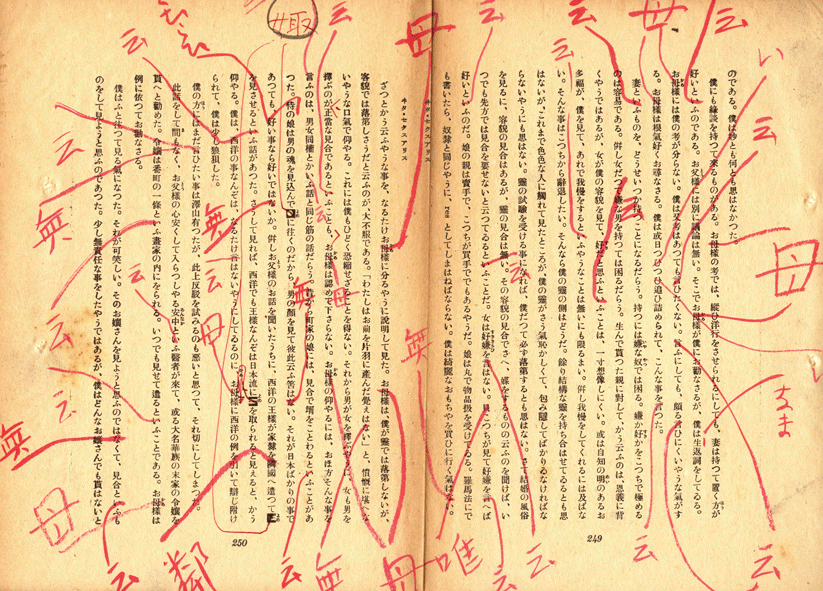 のである。僕は妙とも何とも思はなかつた。
僕にも緣談を持つて來るものがある。お母樣の考では、縱ひ洋行をさせられるにしても、妻は持つて置く方が
好いといふのである。お父樣には別に議論は無い。そこでお母樣が僕にお勸なさるが、僕は生返詞をしてゐる。
お母樣には僕の考が分らない。僕は又考はあつても言ひたくない。言ふにしても、頗る言ひにくいやうな氣がす
る。お母樣は根氣好くお尋なさる。僕は或日つひつひ追ひ詰められて、こんな事を言つた。
妻といふものを、どうせいつか持つことになるだらう。持つには嫌な奴では困る。嫌か好かをこつちで極める
のは容易である。倂し女だつて嫌な男を持つては困るだらう。生んで貰つた親に對して、かう云ふのは、恩義に背
くやうではあるが、女が僕の容貌を見て、好だと思ふといふことは、一寸想像しにくい。或は自知の明のあるお
多福が、僕を見て、あれで我慢をするといふやうなことは無いにも限るまい。倂し我慢をしてくれるには及ばな
い。そんな事はこつちから辭退したい。そんなら僕の靈の側はどうだ。餘り結構な靈を持ち合せてゐるとも思
はないが、これまで色色な人に觸れて見たところが、僕の靈がさう氣恥かしくて、包み隱してばかりゐなければな
らないやうにも思はない。靈の試驗を受ける事になれば、僕だつて必ず落第するとも思はない。さて結婚の風俗
を見るに、容貌の見合はあるが、靈の見合は無い。その容貌の見合でさへ、媒をするものの云ふのを聞けば、い
つでも先方では見合を要せないと云つてゐるといふことだ。女は好嫌を言はない。只こつちが見て好嫌を言へば
好いといふのだ。娘の親は賣手で、こつちが買手ででもあるやうだ。娘は丸で物品扱を受けてゐる。羅馬法にで
も書いたら、奴隸と同じやうに、としてしまはねばならない。僕は綺麗なおもちやを買ひに行く氣はない。
249
ヰタ・セクスアリス
ざつとかう云ふやうな事を、なるたけお母樣に分るやうに說明して見た。お母樣は、僕が靈では落第しないが、
容貌では落第しさうだと云ふのが、大不服である。「わたしはお前を片羽に產んだ覺えはない」と、憤慨に堪へな
いやうな口氣で仰やる。これには僕もひどく恐縮せざることを得ない。それから男が女を擇ぶやうに、女も男を
擇ぶのが正當な見合であるといふことも、お母樣は認めて下さらない。お母樣の仰やるには、おほ方そんな事を
言ふのは、男女同權とかいふ話と同じ筋の話だらう。昔から町家の娘には、見合で壻をことわるといふことがあ
つた。侍の娘は男の魂を見込んでに注くのだから、男の顏を見て彼此云ふ筈はない。それが日本ばかりの事で
あつても、好い事なら好いではないか。倂しお父樣のお話を聞いたうちに、西洋の王樣が家隸を隣國へ遣つて
を見させるといふ話があつた。さうして見れば、西洋でも王樣なんぞは日本流にを取られると見えると、かう
仰やる。僕は、西洋の事なんぞは、なるたけ言はないやうにしてゐるのに、お母樣に西洋の例を引いて辯じ附け
られて、僕は少し狼狽した。
僕の方にはまだ言ひたい事は澤山有つたが、此上反駁を試みるのも惡いと思つて、それ切にしてしまつた。
此話をして間もなく、お父樣の心安くして入らつしやる安中といふ醫者が來て、或る大名華族の末家の令孃を
貰へと勸めた。令孃は番町の一條といふ畫家の內にをられる。いつでも見せて遣るといふことである。お母樣は
例に依つてお勸なさる。
僕はふと往つて見る氣になつた。それが可笑しい。そのお孃さんを見ようと思ふのではなくて、見合といふも
のをして見ようと思ふのであつた。少し無責任な事をしたやうではあるが、僕はどんなお孃さんでも貰はないと
250
云
云
云
母
云
云
云
い
母
なま
云
云
云
唯
母
云
無
云
母
取
云
無
云
母
無
母
無
云
云
無
母
云
云
無
云